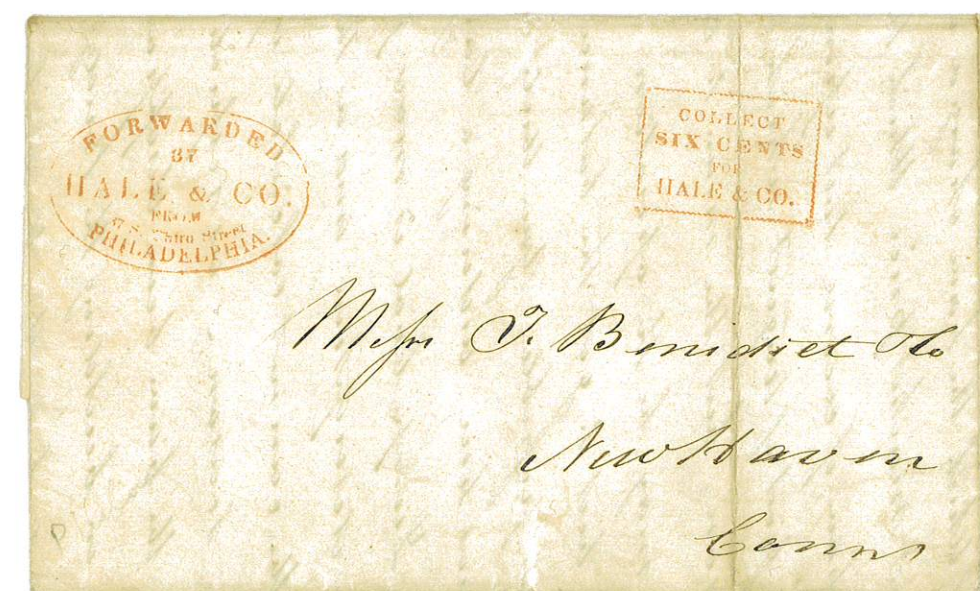 FORWARDED
BY
HALE & CO.
FROM
47 S. Third Street
PHILADELPHIA.
COLLECT
SIX CENTS
FOR
HALE & CO.
Messrs T. Benedict & Co
New Haven
Connt